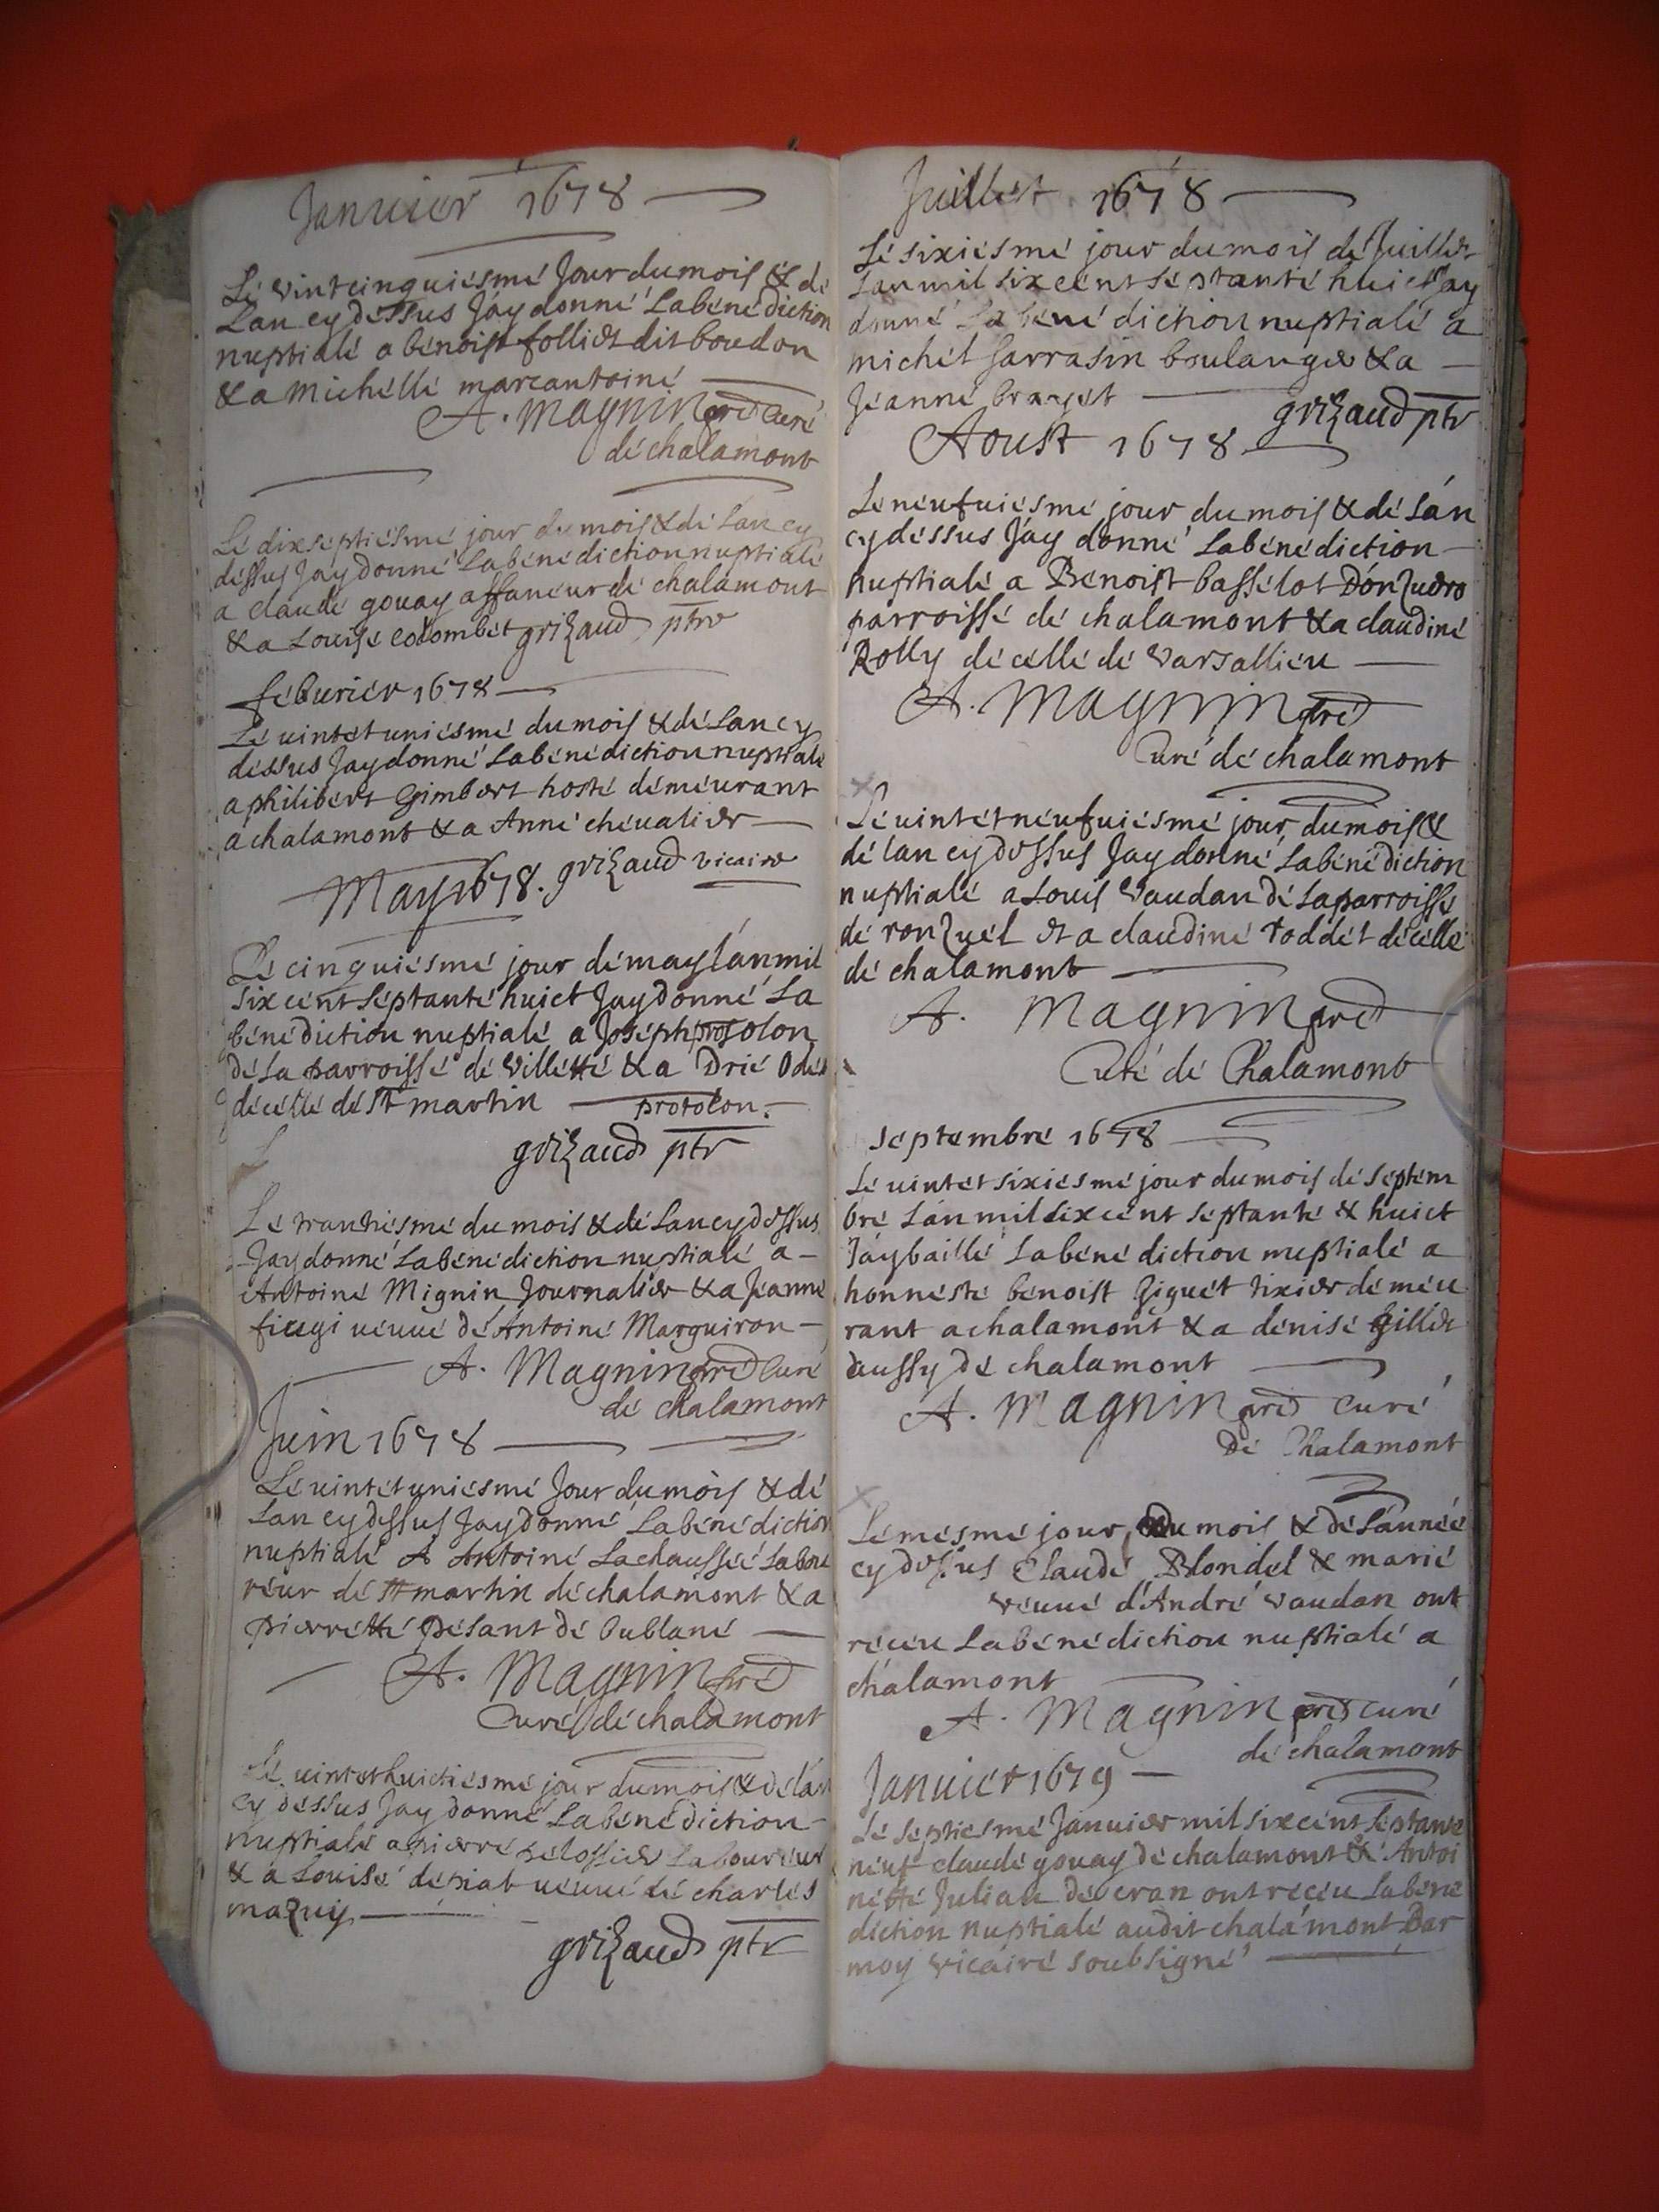 Januier 1678
Le vint cinquiesme Jour du mois & de
Lan cy dessus Jay donné La bénédiction
nuptiale a benoist folliet dit boudon
& a Michelle marcantoine
A. Magnin pre Curé
de chalamont
Le dixseptiesme jour du mois & de Lan cy
dessus Jay donné La bénédiction nuptiale
a claude gouay affaneur de chalamont
& a Louise colombet grizaud ptre
féburier 1678
Le uint et uniesme du mois & de Lan cy
dessus Jay donné La bénédiction nuptiale
a philibert Gimbert hoste demeurant
a chalamont & a Anne cheualier
grizaud vicaire
May 1678.
Le cinquiesme jour de may lan mil
six cent septante huict Jay donné La
bénédiction nuptiale a Joseph olon
de La parroisse de Villette & a Drie Odet
de celle de st martin protolon.
grizaud ptr
Le trantiesme du mois & de Lan cy dessus
Jay donné La bénédiction nuptiale a
Antoine Mignin Journalier & a Jeanne
ueuue de Antoine Marguiron
A. Magnin pre Curé
de chalamont
Juin 1678
Le uint et uniesme Jour du mois & de
Lan cy dessus Jay donné La bénédiction
nuptiale A Antoine Lachaussée Labou
reur de st martin de chalamont & a
pierrette pesant de bublane
A. Magnin pre
Curé de chalamont
Le uint et huictiesme jour du mois & de lan
cy dessus Jay donné La bénédiction
nuptiale a pierre pelossier Laboureur
& a Louise depiat ueuue de charles
mazuy
grizaud ptr
Juillet 1678
Le sixiesme jour du mois de Juillet
Lan mil six cent septante huict Jay
donné La bénédiction nuptiale a
michel sarrasin boulanger & a
Jeanne brayet grizaud ptr
Aoust 1678
Le neufuiesme jour du mois & de Lan
cy dessus Jay donné La bénédiction
nuptiale a Benoist basselot Donzuero
parroisse de chalamont & a claudine
Rolly de celle de Varsallieu
A. Magnin pre
Curé de chalamont
Le uint et neufuiesme jour du mois &
de lan cy dessus Jay donné La bénédiction
nuptiale a Louis Vaudan de La parroisse
de ronzuel et a claudine roddet de celle
de chalamont
A. Magnin pre
Curé de Chalamont
septembre 1678
Le uint et sixiesme jour du mois de septem
bre Lan mil six cent septante & huict
Jay baillé La bénédiction nuptiale a
honneste benoist ziguet tixier demeu
rant a chalamont & a denise gillet
aussy de chalamont
A. Magnin pre curé
de Chalamont
Le mesme jour du mois & de Lannée
cy dessus Claude Blondel & marie
veuue d'André vaudan ont
receu La bénédiction nuptiale a
chalamont
A. Magnin pre curé
de chalamont
Januier 1679
Le septiesme Januier mil six cent septante
neuf claude gouay de chalamont & Antoi
nette Julian de cran ont receu La béné
diction nuptiale audit chalamont Par
moy vicaire soubsigné